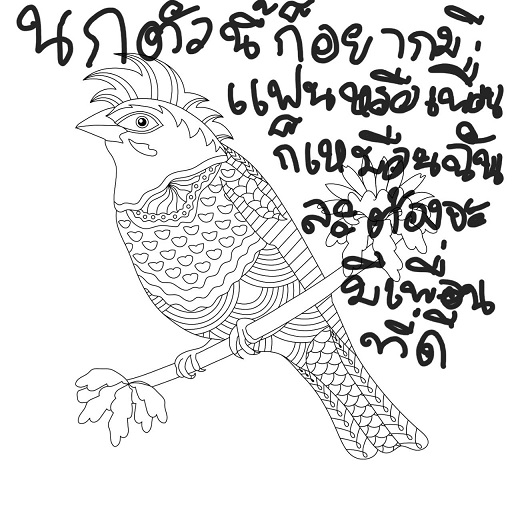 นกตัวนี้ก็อยากมี
แฟนหรือเพื่อน
ก็เหมือนฉัน
ละต้องจะ
มีเพื่อน
ที่ดี